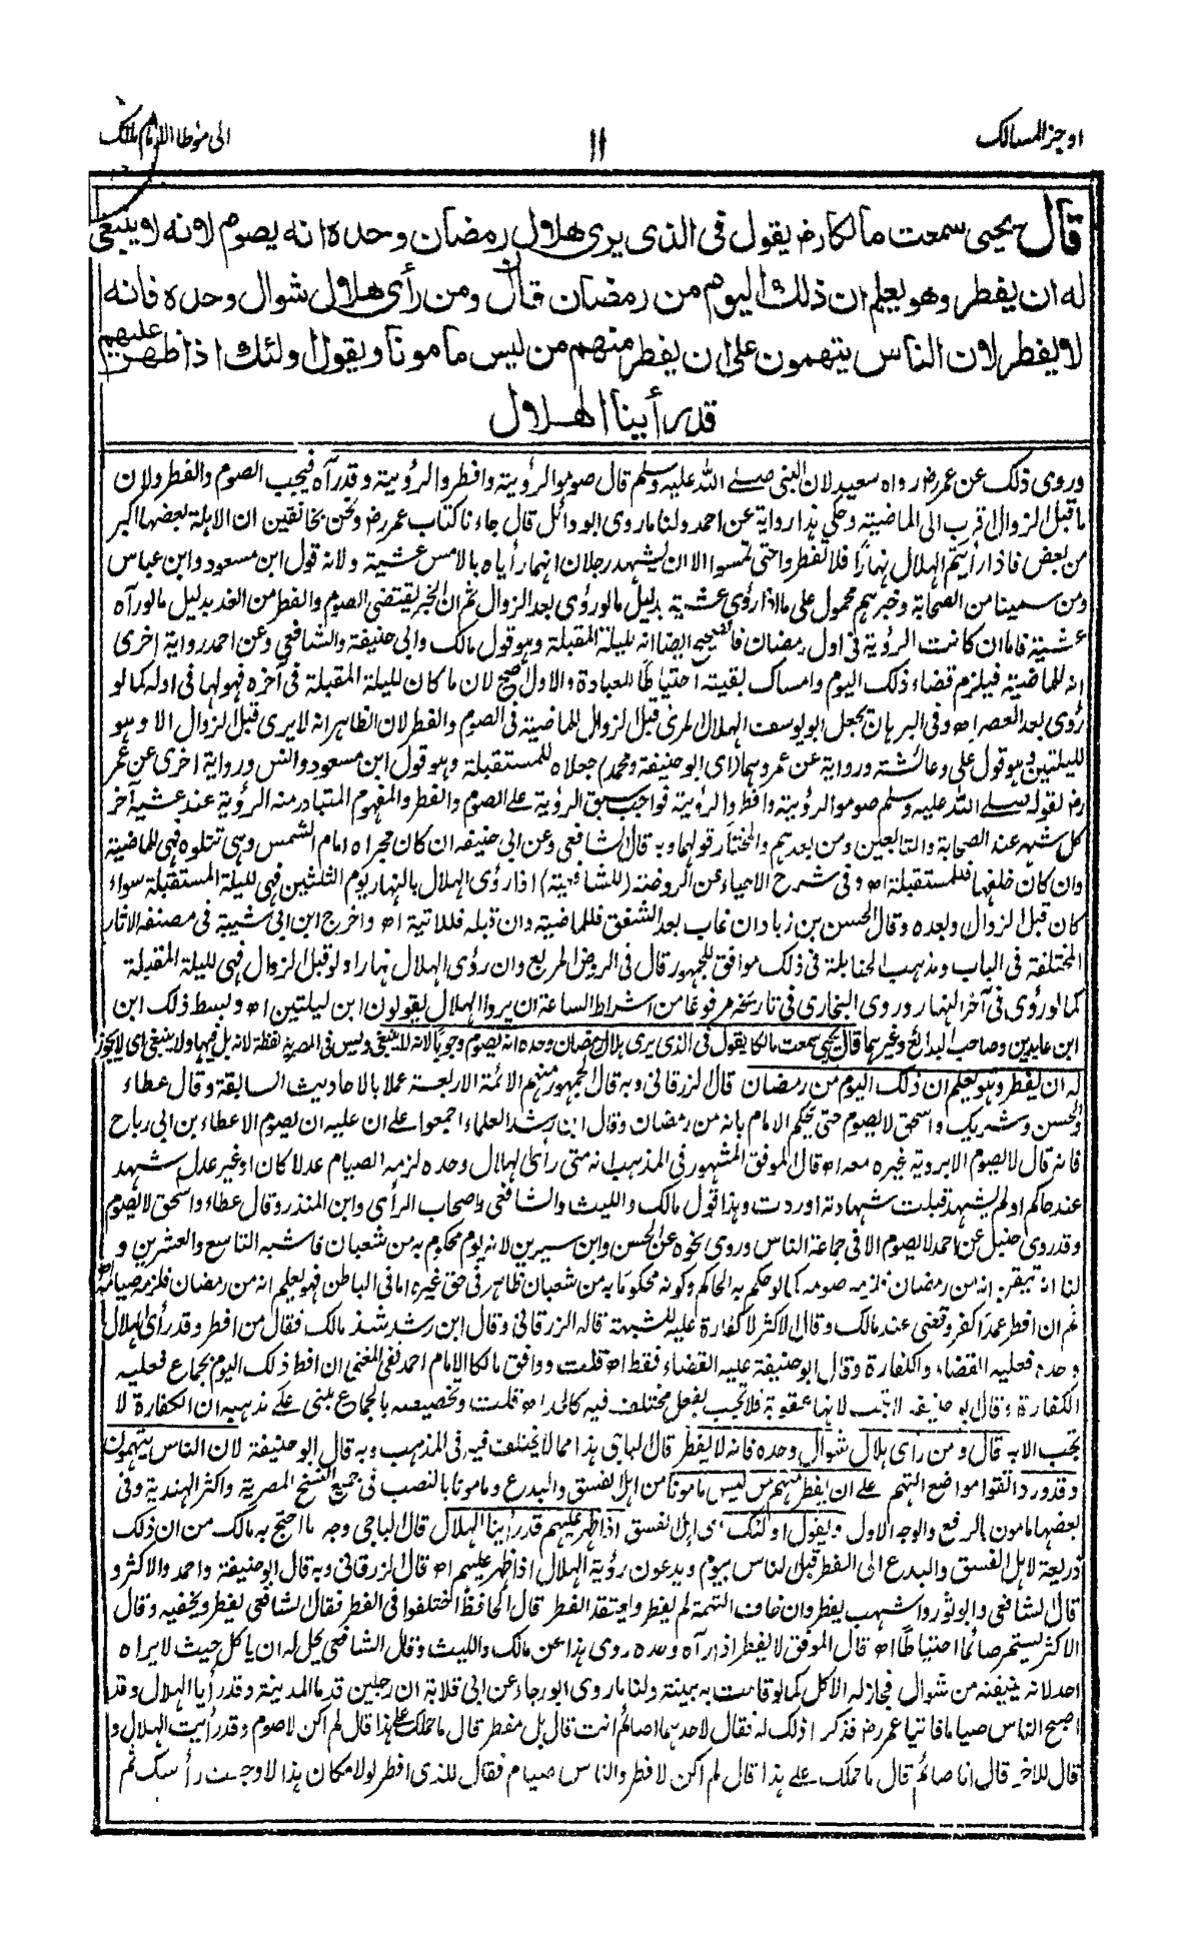 اوجز المسالك
١١
الى موطا الامام مالك
قال يحيى سمعت مالكا رض يقول فى الذى يرى هلال رمضان وحده انه يصوم لانه لا ينبغى
له ان يفطر وهو يعلم ان ذلك اليوم من رمضان قال ومن رأى هلال شوال وحده فانه
لا يفطر لان الناس يتهمون على ان يفطر منهم من ليس مامونا ويقول اولئك اذا ظهر عليهم
قد رأينا الهلال
وروى ذلك عن عمر رض رواه سعيد لان النبى صلے الله عليه وسلم قال صوموا لرؤيته وافطروا لرؤيته وقد رآه فيجب الصوم والفطر ولان
ما قبل الزوال اقرب الى الماضية وحكى هذا رواية عن احمد ولنا ما روى ابو وائل قال جاءنا كتاب عمر رض ونحن بخانقين ان الاہلة بعضها اكبر
من بعض فاذا رأيتم الہلال نہارًا فلا تفطروا حتى تمسوا الا ان يشہد رجلان انہما رأياه بالامس عشية ولانه قول ابن مسعود وابن عباس
ومن سمينا من الصحابة وخبرہم محمول على ما اذا رؤى عشية بدليل ما لو رؤى بعد الزوال ثم ان الخبر يقتضى الصوم والفطر من الغد بدليل ما لو رآه
عشية فاما ان كانت الرؤية فى اول رمضان فالصحيح ايضا انه لليلة المقبلة وہو قول مالك وابى حنيفة والشافعى وعن احمد رواية اخرى
انه للماضية فيلزم قضاء ذلك اليوم وامساك بقيته احتياطًا للعبادة والاول اصح لان ما كان لليلة المقبلة فى آخره فہو لہا فى اوله كما لو
رؤى بعد العصر اھ وفى البرہان يجعل ابو يوسف الہلال المرئى قبل الزوال للماضية فى الصوم والفطر لان الظاہر انه لا يرى قبل الزوال الا وہو
لليلتين وہو قول على وعائشة ورواية عن عمر وہما (اى ابو حنيفة ومحمد) جعلاه للمستقبلة وہو قول ابن مسعود وانس ورواية اخرى عن عمر
رض لقوله صلے الله عليه وسلم صوموا لرؤيته وافطروا لرؤيته فواجب سبق الرؤية على الصوم والفطر والمفہوم المتبادر منه الرؤية عند عشية آخر
كل شہر عند الصحابة والتابعين ومن بعدہم والمختار قولہما وبه قال الشافعى وعن ابى حنيفه ان كان مجراه امام الشمس وہى تتلوه فہى للماضية
وان كان خلفہا فللمستقبلة اھ وفى شرح الاحياء عن الروضة (للشافعية) اذا رؤى الہلال بالنہار يوم الثلثين فہى لليلة المستقبلة سواء
كان قبل الزوال وبعده وقال الحسن بن زياد ان غاب بعد الشفق فللماضية وان قبله فللاتية اھ واخرج ابن ابى شيبة فى مصنفه الآثار
المختلفة فى الباب ومذہب الحنابلة فى ذلك موافق للجمہور قال فى الروض المربع وان رؤى الہلال نہارا ولو قبل الزوال فہى لليلة المقبلة
كما لو رؤى فى آخر النہار وروى البخارى فى تاريخه مرفوعا من اشراط الساعة ان يروا الہلال يقولون ابن ليلتين اھ وبسط ذلك ابن
ابن عابدين وصاحب البدائع وغيرہما قال يحيى سمعت مالكا يقول فى الذى يرى ہلال رمضان وحده انه يصوم وجوبًا لانه لا ينبغى وليس فى المصرية لفظة لانه بل فيہا ولا ينبغى اى لا يجوز
له ان يفطر وہو يعلم ان ذلك اليوم من رمضان قال الزرقانى وبه قال الجمہور منہم الائمة الاربعة عملا بالاحاديث السابقة وقال عطاء
والحسن وشريك واسحق لا يصوم حتى يحكم الامام بانه من رمضان وقال ابن رشد العلماء اجمعوا على ان عليه ان يصوم الا عطاء بن ابى رباح
فانه قال لا يصوم الا برؤية غيره معه اھ قال الموفق المشہور فى المذہب انه متى رأى الہلال وحده لزمه الصيام عدلا كان او غير عدل شہد
عند حاكم او لم يشہد قبلت شہادته او ردت وہذا قول مالك والليث والشافعى واصحاب الرأى وابن المنذر وقال عطاء واسحق لا يصوم
وقد روى حنبل عن احمد لا يصوم الا فى جماعة الناس وروى نحوه عن الحسن وابن سيرين لانه يوم محكوم به من شعبان فاشبه التاسع والعشرين و
لنا انه تيقن انه من رمضان فلزمه صومه كما لو حكم به الحاكم وكونه محكومًا به من شعبان ظاہر فى حق غيره اما فى الباطن فہو يعلم انه من رمضان فلزمه صيامه اھ
ثم ان افطر عمدا كفر وقضى عند مالك وقال الاكثر لا كفارة عليه للشبہة قاله الزرقانى وقال ابن رشد شذ مالك فقال من افطر وقد رأى الہلال
وحده فعليه القضاء والكفارة وقال ابو حنيفة عليه القضاء فقط اھ قلت ووافق مالكا الامام احمد ففى المغنى ان افطر ذلك اليوم بجماع فعليه
الكفارة وقال ابو حنيفة لا تجب لانہا عقوبة فلا تجب بفعل مختلف فيه كالحد اھ قلت وتخصيصه بالجماع يبنى على مذہبه ان الكفارة لا
تجب الا به قال ومن رأى ہلال شوال وحده فانه لا يفطر قال الباجى ہذا مما لا يختلف فيه فى المذہب وبه قال ابو حنيفة لان الناس يتہمون
وقد ورد اتقوا مواضع التہم على ان يفطر منہم من ليس مامونًا من اہل الفسق والبدع ومامونا بالنصب فى جميع النسخ المصرية واكثر الہندية وفى
بعضہا مامون بالرفع والوجه الاول ويقول اولئك اى اہل الفسق اذا ظہر عليہم قد رأينا الہلال قال الباجى وجه ما احتج به مالك من ان ذلك
ذريعة لاہل الفسق والبدع الى الفطر قبل الناس بيوم ويدعون رؤية الہلال اذا ظہر عليہم اھ قال الزرقانى وبه قال ابو حنيفة واحمد والاكثر و
قال الشافعى وابو ثور واشہب يفطر وان خاف التہمة لم يفطر واعتقد الفطر قال الحافظ اختلفوا فى الفطر فقال الشافعى يفطر ويخفيه وقال
الاكثر يستمر صائما احتياطًا اھ قال الموفق لا يفطر اذا رآه وحده روى ہذا عن مالك والليث وقال الشافعى يحل له ان يأكل حيث لا يراه
احد لانه يتيقنه من شوال فجاز له الاكل كما لو قامت به بينة ولنا ما روى ابو رجاء عن ابى قلابة ان رجلين قدما المدينة وقد رأيا الہلال وقد
اصبح الناس صياما فاتيا عمر رض فذكرا ذلك له فقال لاحدہما اصائم انت قال بل مفطر قال ما حملك على ہذا قال لم اكن لاصوم وقد رأيت الہلال و
قال للآخر قال انا صائم قال ما حملك على ہذا قال لم اكن لافطر والناس صيام فقال للذى افطر لولا مكان ہذا لاوجعت رأسك ثم